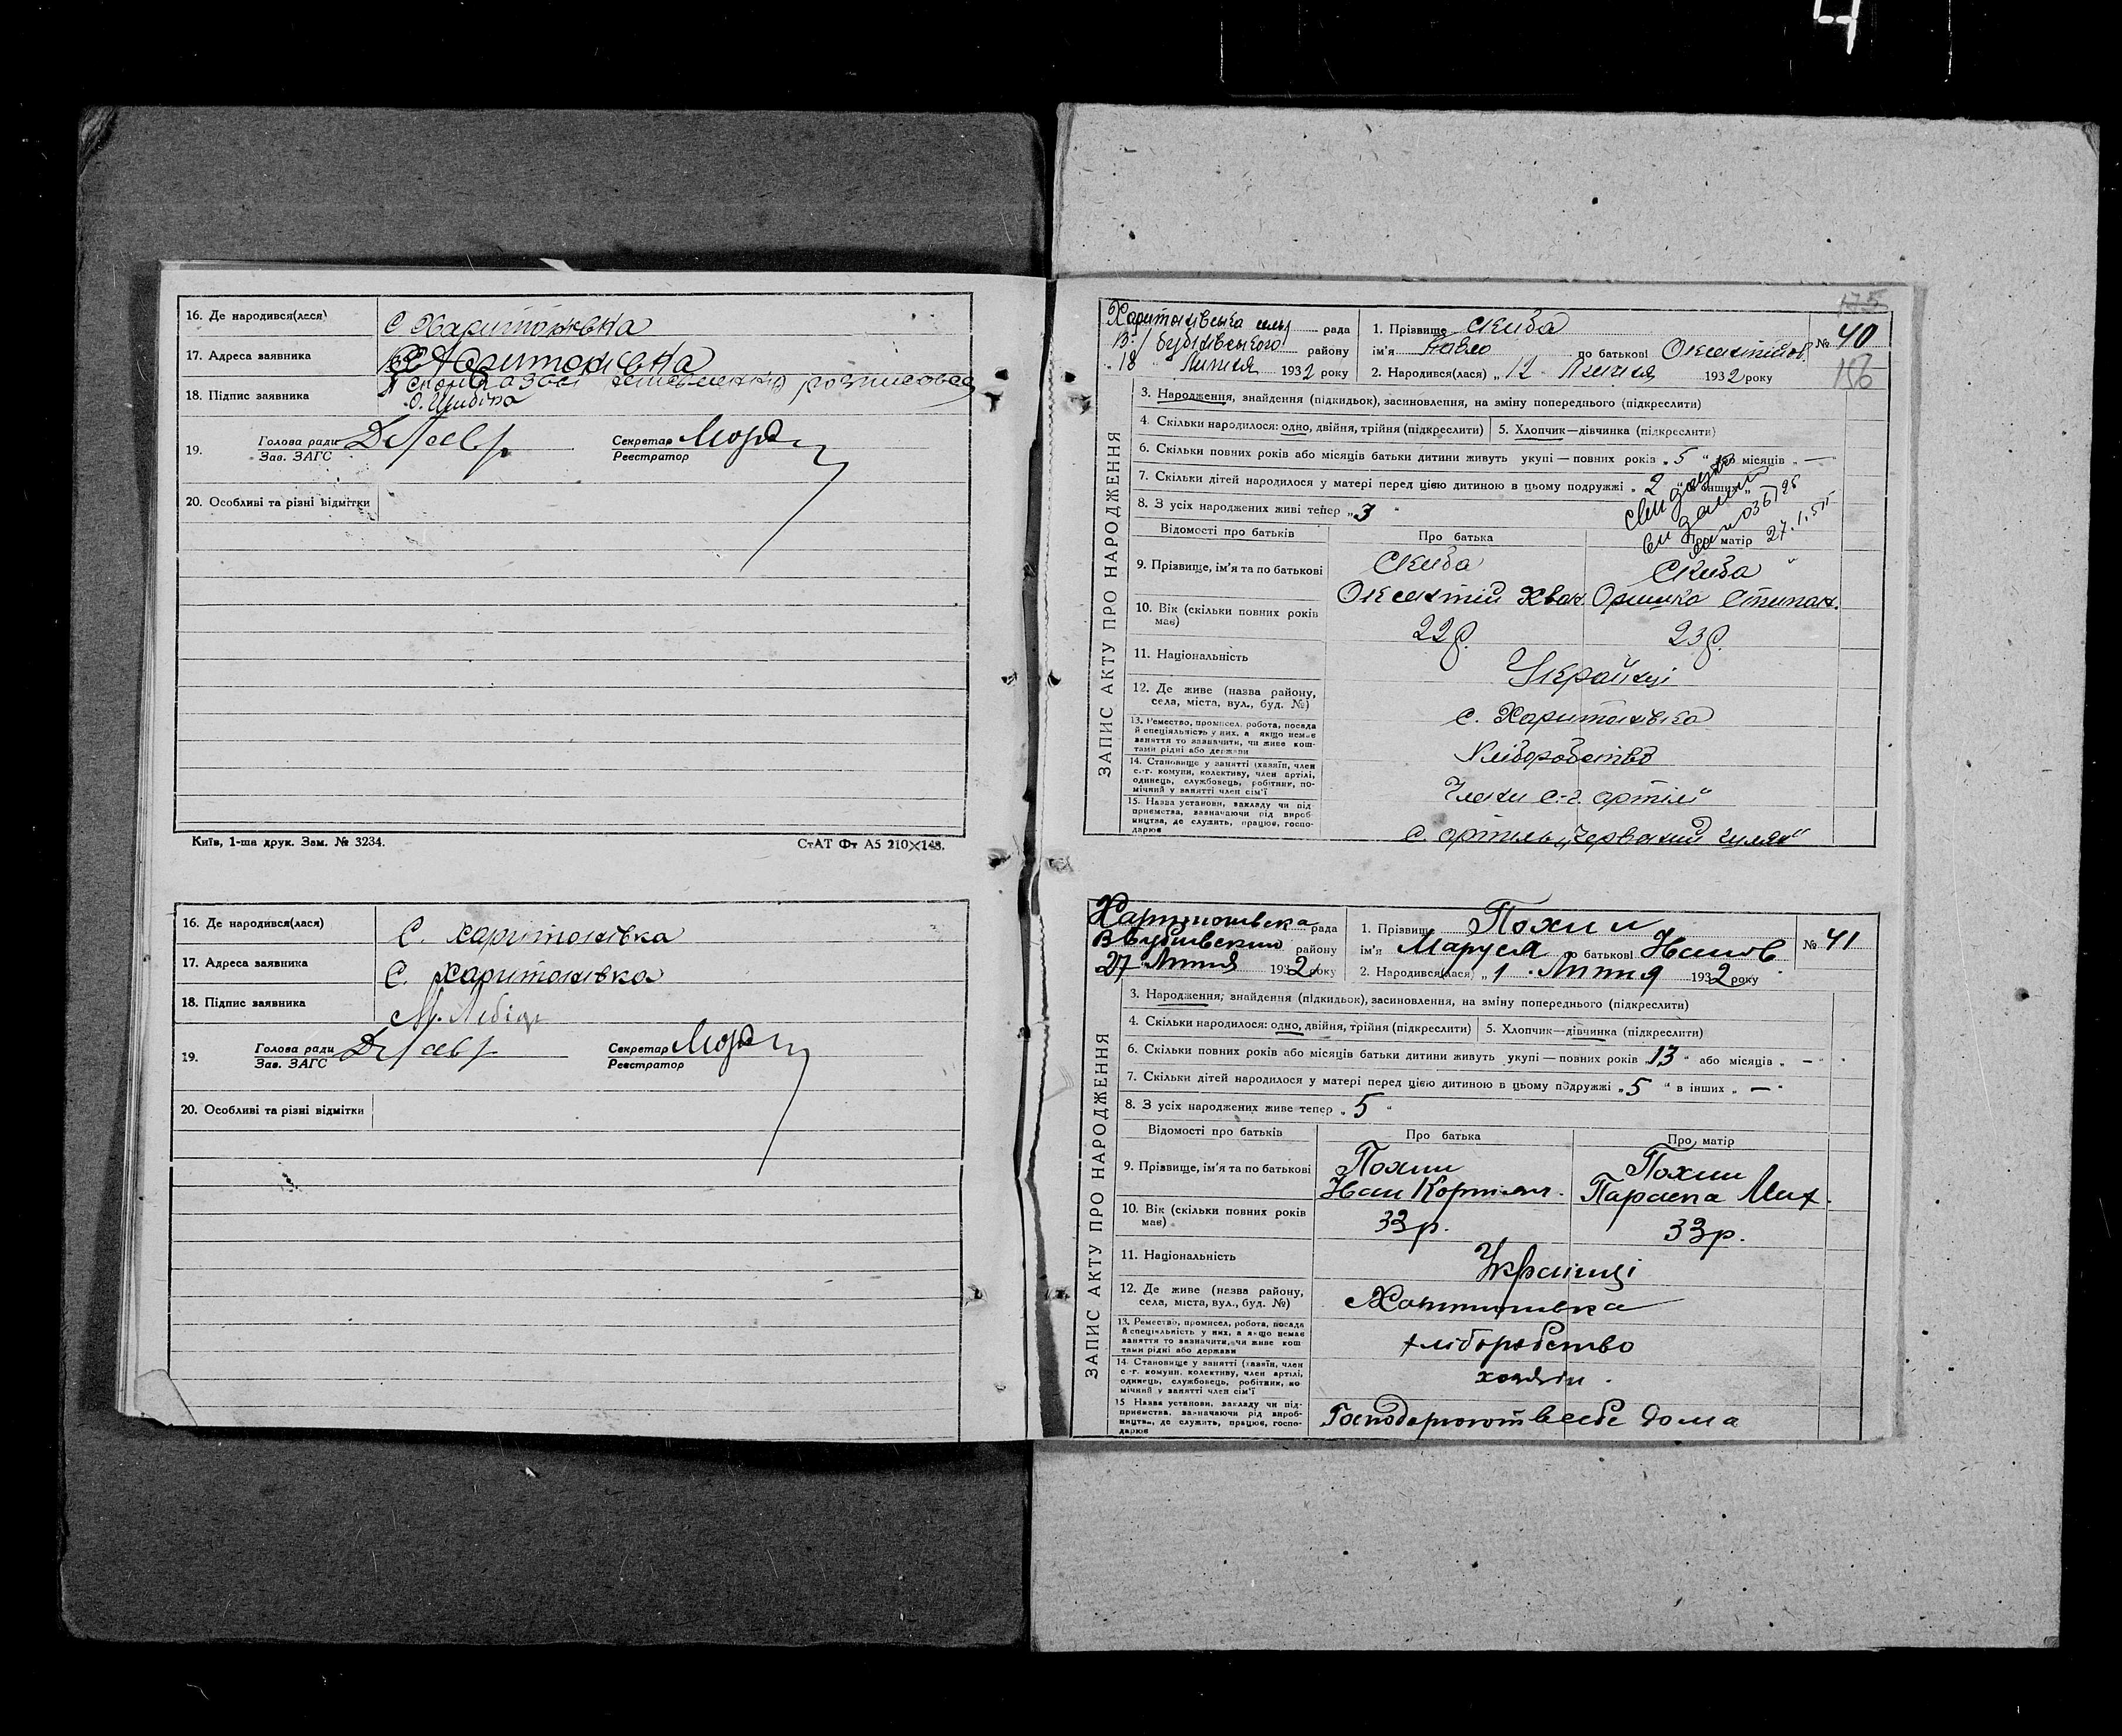 16. Де народився(лася)
С Харитонівка
17. Адреса заявника
С Харитонівка
18. Підпис заявника
розписовся
19. Голова ради
Зав. ЗАГС
Секретар
Реєстратор
20. Особливі та різні відмітки
Київ, 1-ша друк. Зам. № 3234.
СтАТ Фт А5 210×148.
16. Де народився(лася)
С. Харитонівка
17. Адреса заявника
С. Харитонівка
18. Підпис заявника
М. Лебідь
19. Голова ради
Зав. ЗАГС
Секретар
Реєстратор
20. Особливі та різні відмітки
175
156
ЗАПИС АКТУ ПРО НАРОДЖЕННЯ
Харитонівська сельс рада
В/бубнівського району
„ 18 Липня 1932 року
1. Прізвище Скиба
ім'я Павло по батькові
№ 40
2. Народився(лася) „ 12 Липня 1932 року
3. Народження, знайдення (підкидьок), засиновлення, на зміну попереднього (підкреслити)
4. Скільки народилося: одно, двійня, трійня (підкреслити)
5. Хлопчик—дівчинка (підкреслити)
6. Скільки повних років або місяців батьки дитини живуть укупі — повних років „ 5 “ або місяців „ —
7. Скільки дітей народилося у матері перед цією дитиною в цьому подружжі „ 2 “ в інших „
8. З усіх народжених живі тепер „ 3 “
27.I.5
Відомості про батьків
Про батька
Про матір
9. Прізвище, ім'я та по батькові
Скиба
Скиба
Оришка Степан.
10. Вік (скільки повних років має)
22р.
23р.
11. Національність
Українці
12. Де живе (назва району, села, міста, вул., буд. №)
с. Харитонівка
13. Ремество, промисел, робота, посада й спеціяльність у них, а якщо немає заняття то зазначити, чи живе коштами рідні або держави
Хліборобство
14. Становище у занятті (хазяїн, член с.-г. комуни, колективу, член артілі, одинець, службовець, робітник, помічний у занятті член сім'ї
Члени с.-г. артілі
15. Назва установи, закладу чи підприємства, зазначаючи під виробництва, де служить, працює, господарює
С. артиль „Червоний шлях“
ЗАПИС АКТУ ПРО НАРОДЖЕННЯ
Харитонівська рада
району
27 Липня 1932 року
1. Прізвищ. Похил
ім'я Маруся по батькові Іванов
№ 41
2. Народився(лася) „ 1 Липня 1932 року
3. Народження, знайдення (підкидьок), засиновлення, на зміну попереднього (підкреслити)
4. Скільки народилося: одно, двійня, трійня (підкреслити)
5. Хлопчик—дівчинка (підкреслити)
6. Скільки повних років або місяців батьки дитини живуть укупі — повних років „ 13 “ або місяців „ — “
7. Скільки дітей народилося у матері перед цією дитиною в цьому подружжі „ 5 “ в інших „ — “
8. З усіх народжених живе тепер „ 5 “
Відомості про батьків
Про батька
Про матір
9. Прізвище, ім'я та по батькові
Похил
Похил
Параска Мих.
10. Вік (скільки повних років має)
33р.
33р.
11. Національність
Українці
12. Де живе (назва району, села, міста, вул., буд. №)
Харитонивка
13. Ремество, промисел, робота, посада й спеціяльність у них, а якщо немає заняття то зазначити, чи живе коштами рідні або держави
хліборобство
14. Становище у занятті (хазяїн, член с.-г. комуни, колективу, член артілі, одинець, службовець, робітник, помічний у занятті член сім'ї
хозяїн.
15 Назва установи, закладу чи підприємства, зазначаючи рід виробництва, де служить, працює, господарює
Господарюют в себе дома